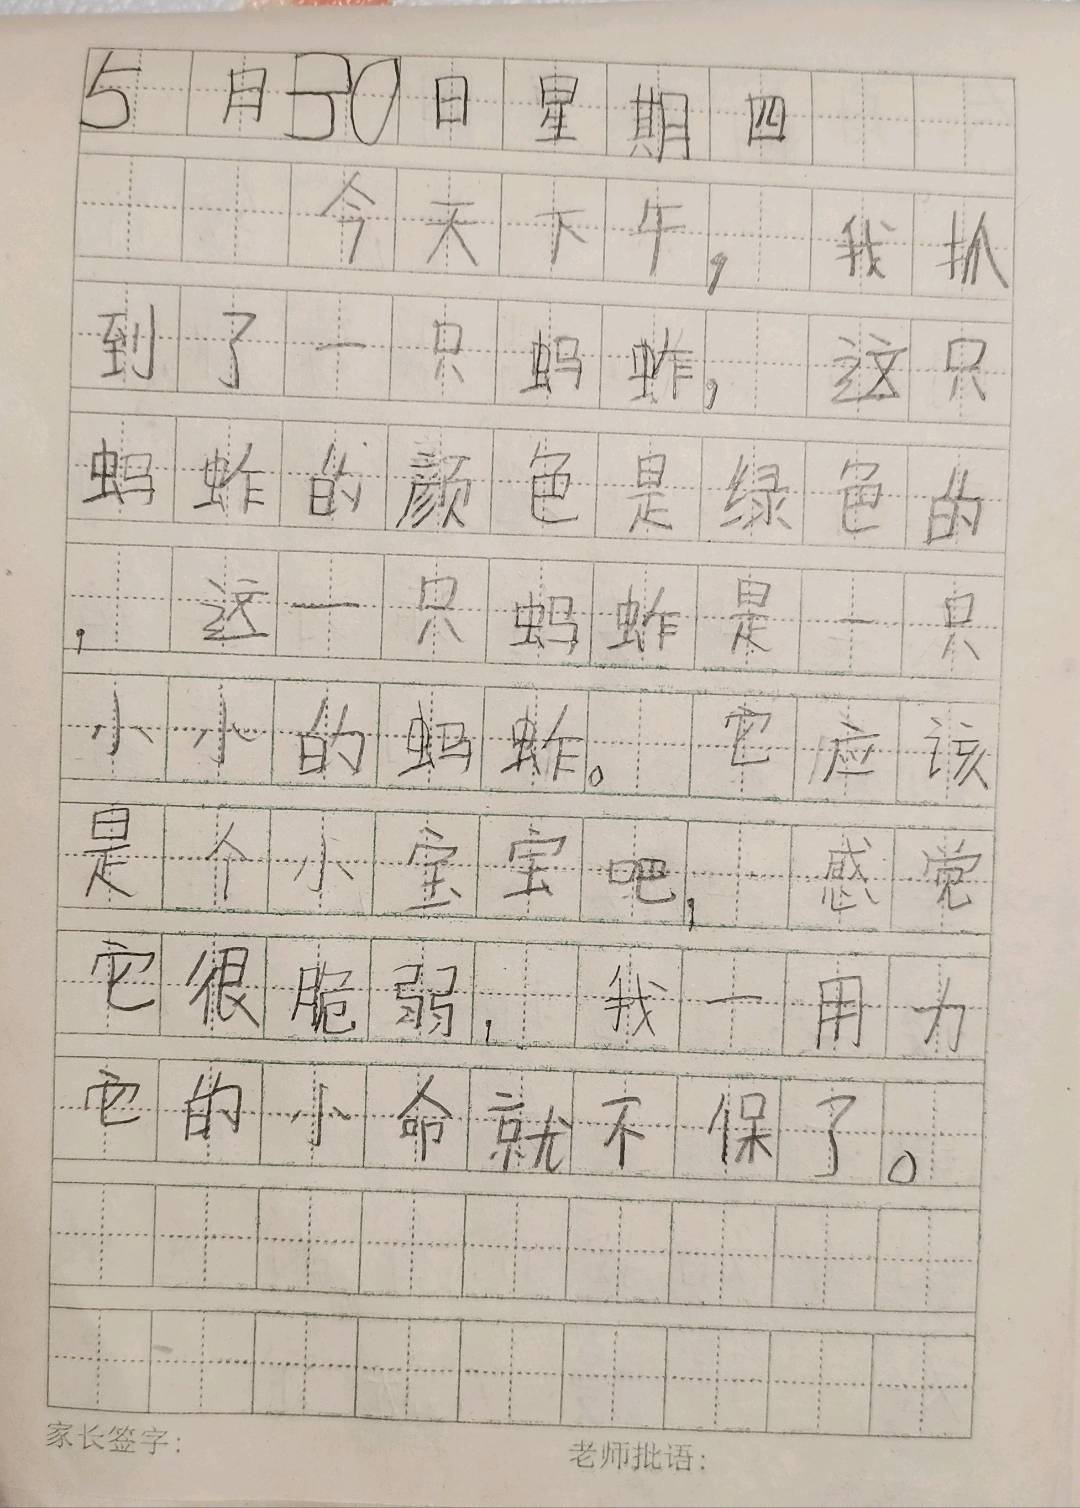 5月30日星期四
今天下午，我抓
到了一只蚂蚱，这只
蚂蚱的颜色是绿色的
，这一只蚂蚱是一只
小小的蚂蚱。它应该
是个小宝宝吧，感觉
它很脆弱，我一用力
它的小命就不保了。
家长签字：
老师批语：